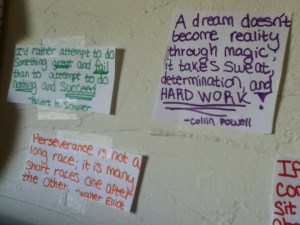 I'd rather attempt to do
something great and fail
than to attempt to do
nothing and succeed
-Robert H. Schuller
A dream doesn't
become reality
through magic;
it takes sweat,
determination, and
HARD WORK
-Colin Powell
Perseverance is not a
long race; it is many
short races one after
the other -Walter Elliot